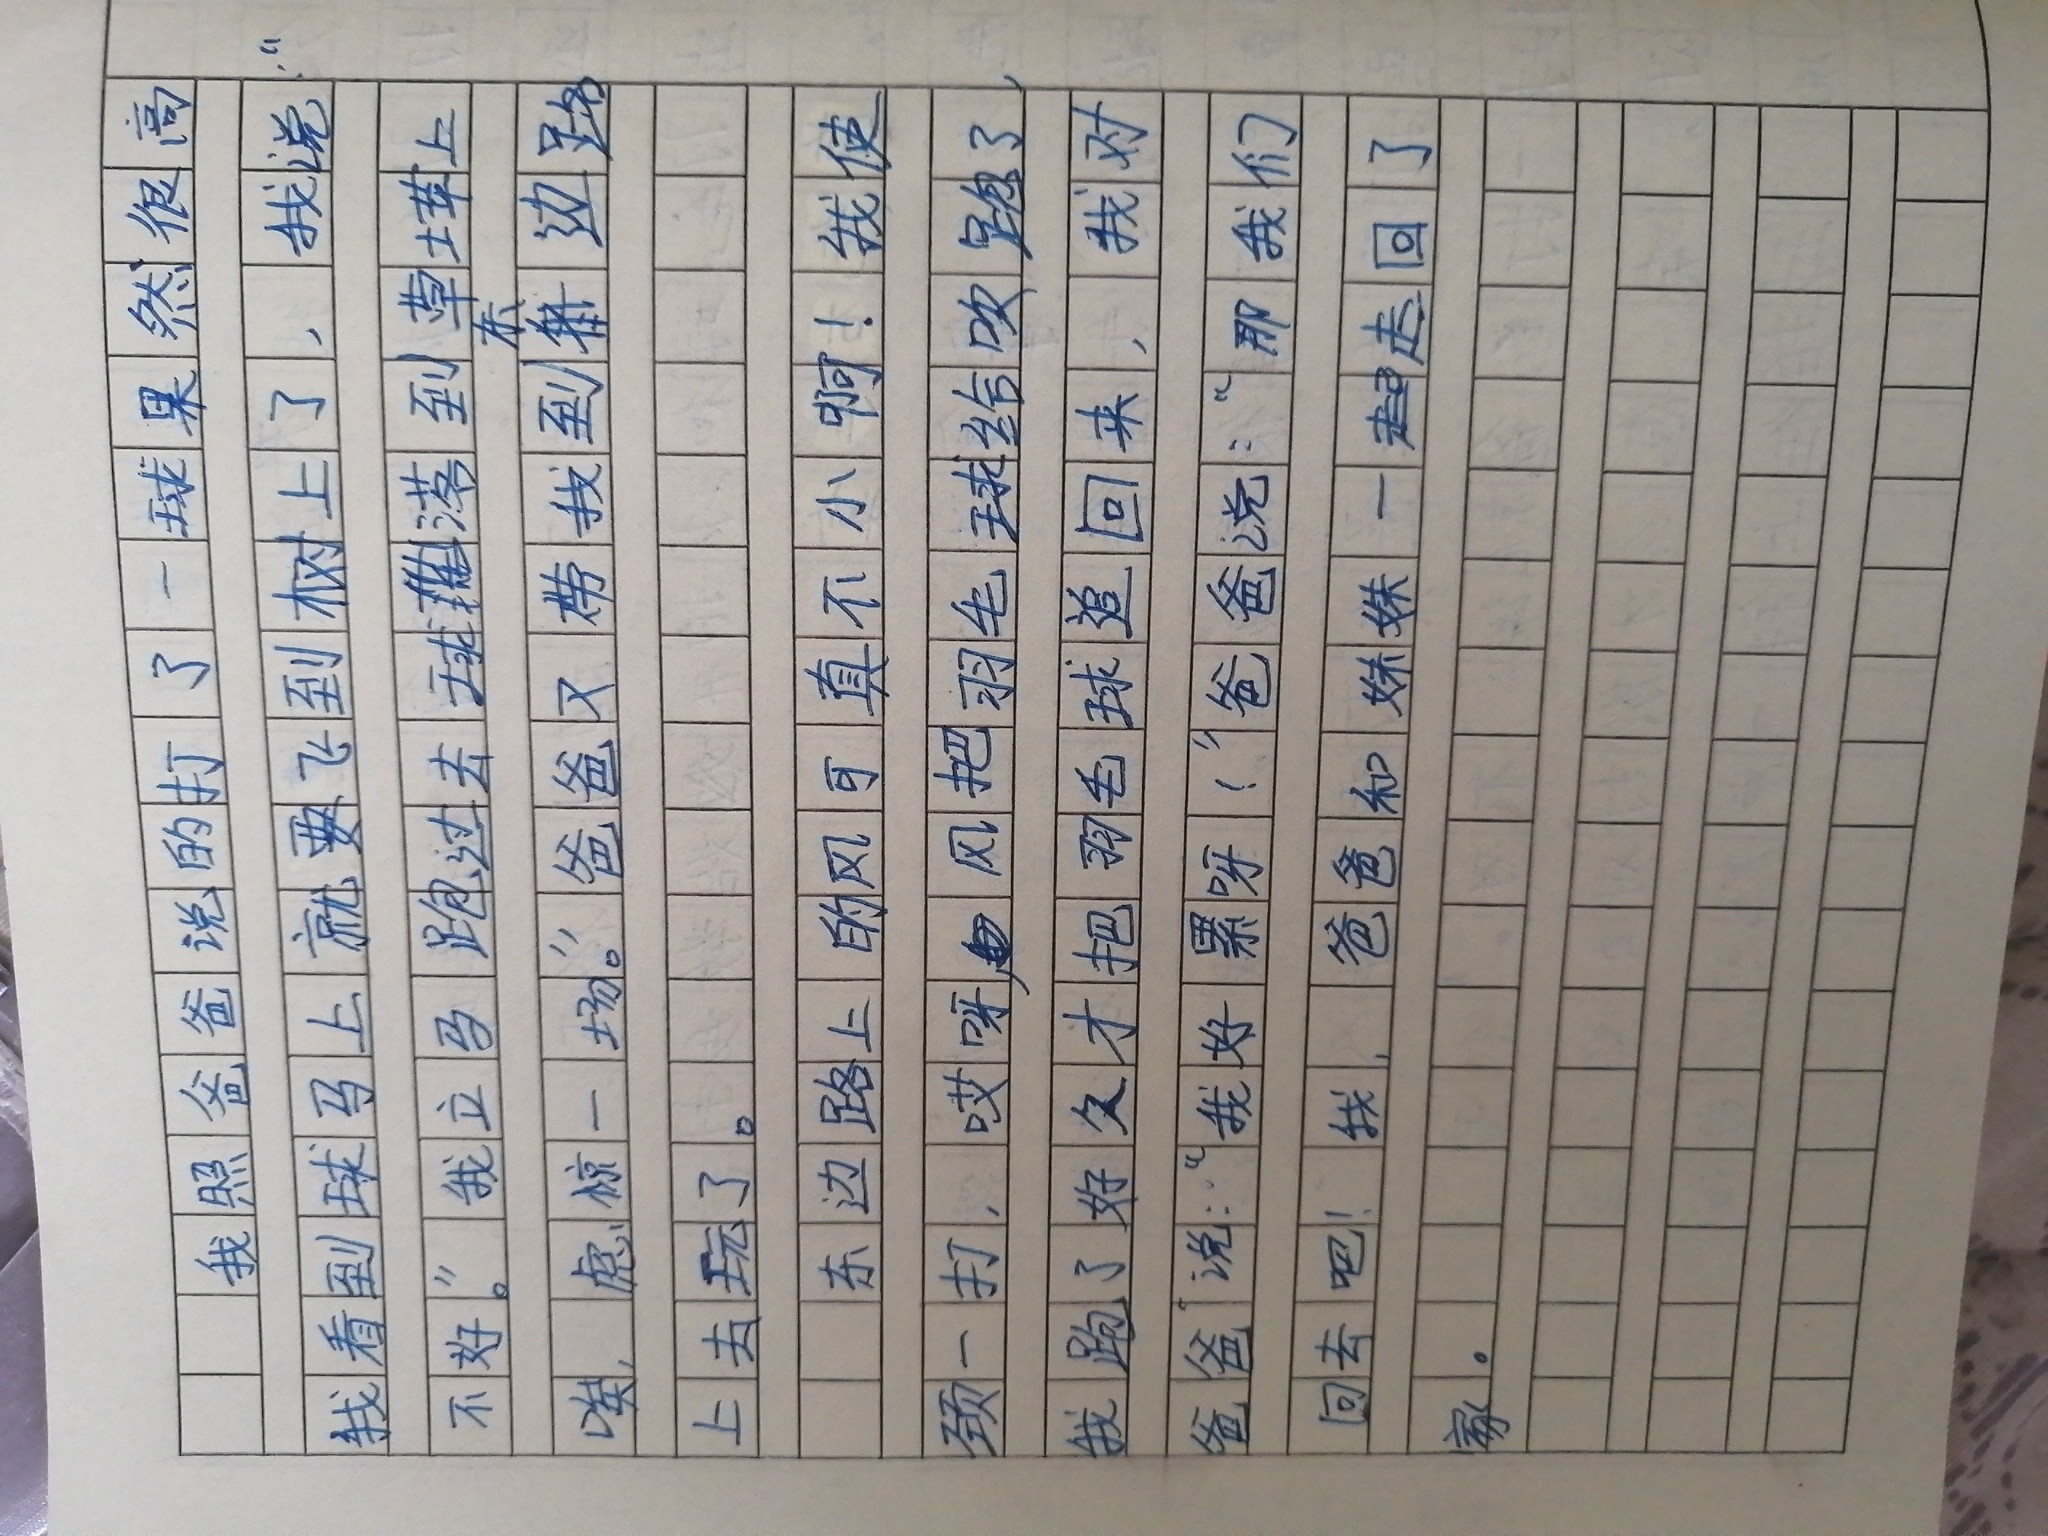 我照爸爸说的打了一球果然很高
我看到球马上就要飞到树上了，我说：“
不好。”我立马跑过去球落到草坪上
唉，虑惊一场。”爸爸又带我到东边路
上去玩了。
东边路上的风可真不小啊！我使
颈一打，哎呀，风把羽毛球给吹跑了，
我跑了好久才把羽毛球追回来，我对
爸爸说：“我好累呀！”爸爸说：“那我们
回去吧！我，爸爸和妹妹一起走回了
家。